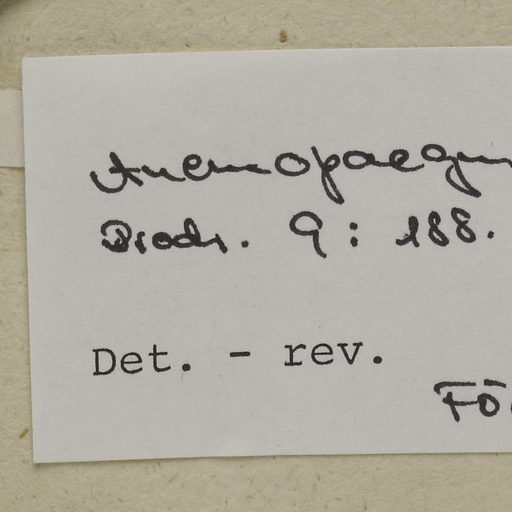 Anemopaegm
Prodr. 9: 188.
Det. - rev.
Fö